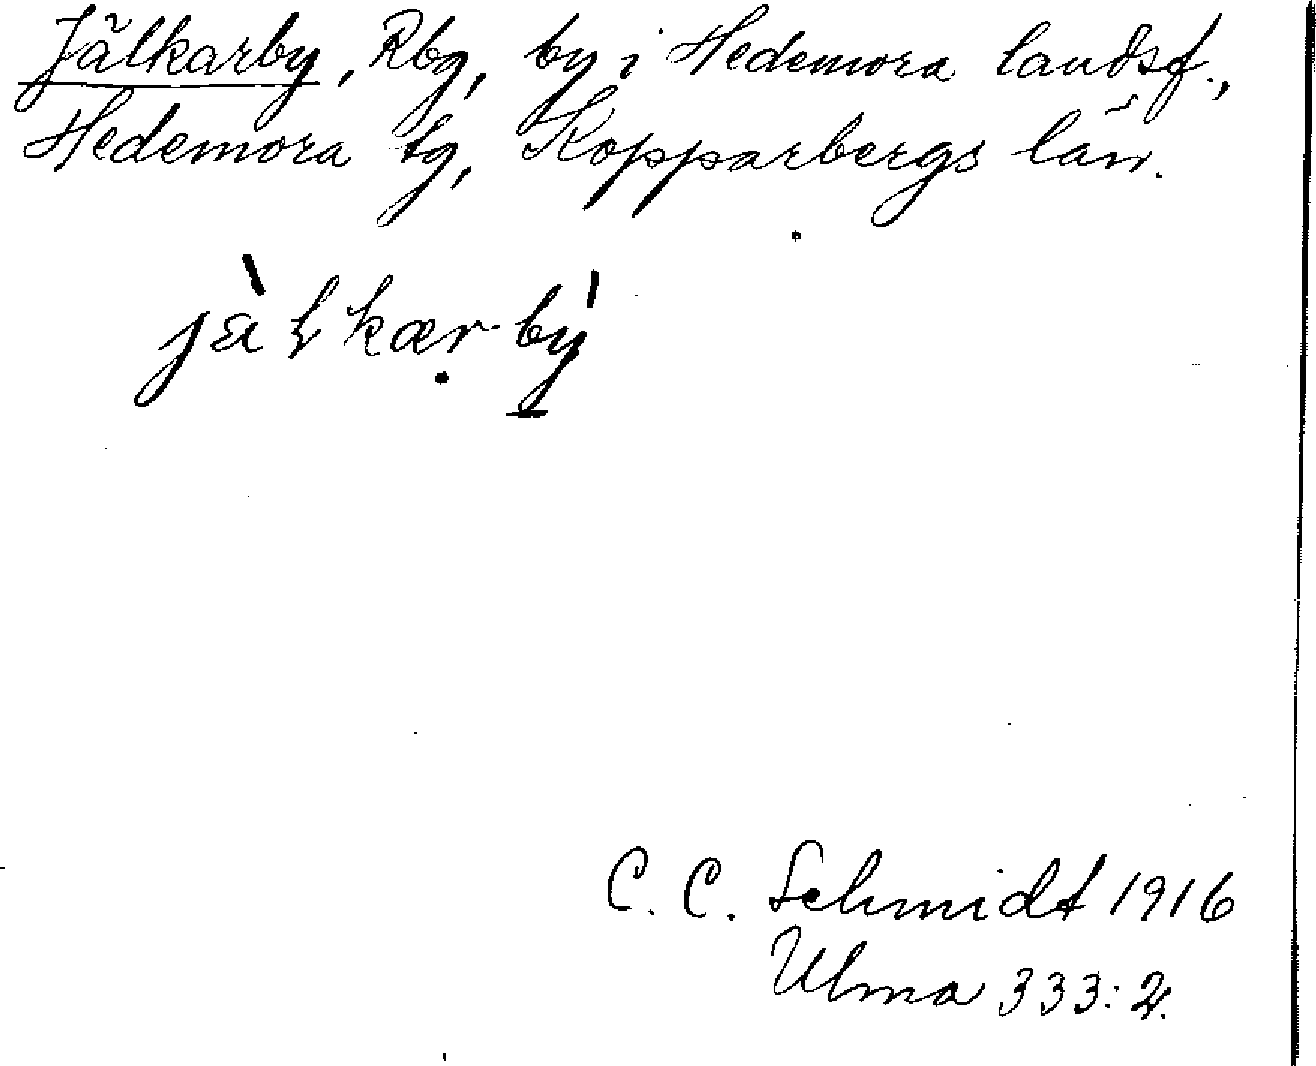 Jälkarby, Rbg, by i Hedemora landsf.,
Hedemora tg, Kopparbergs län.
jὰƚkær-bý
C. C. Schmidt 1916
Ulma 333:2.